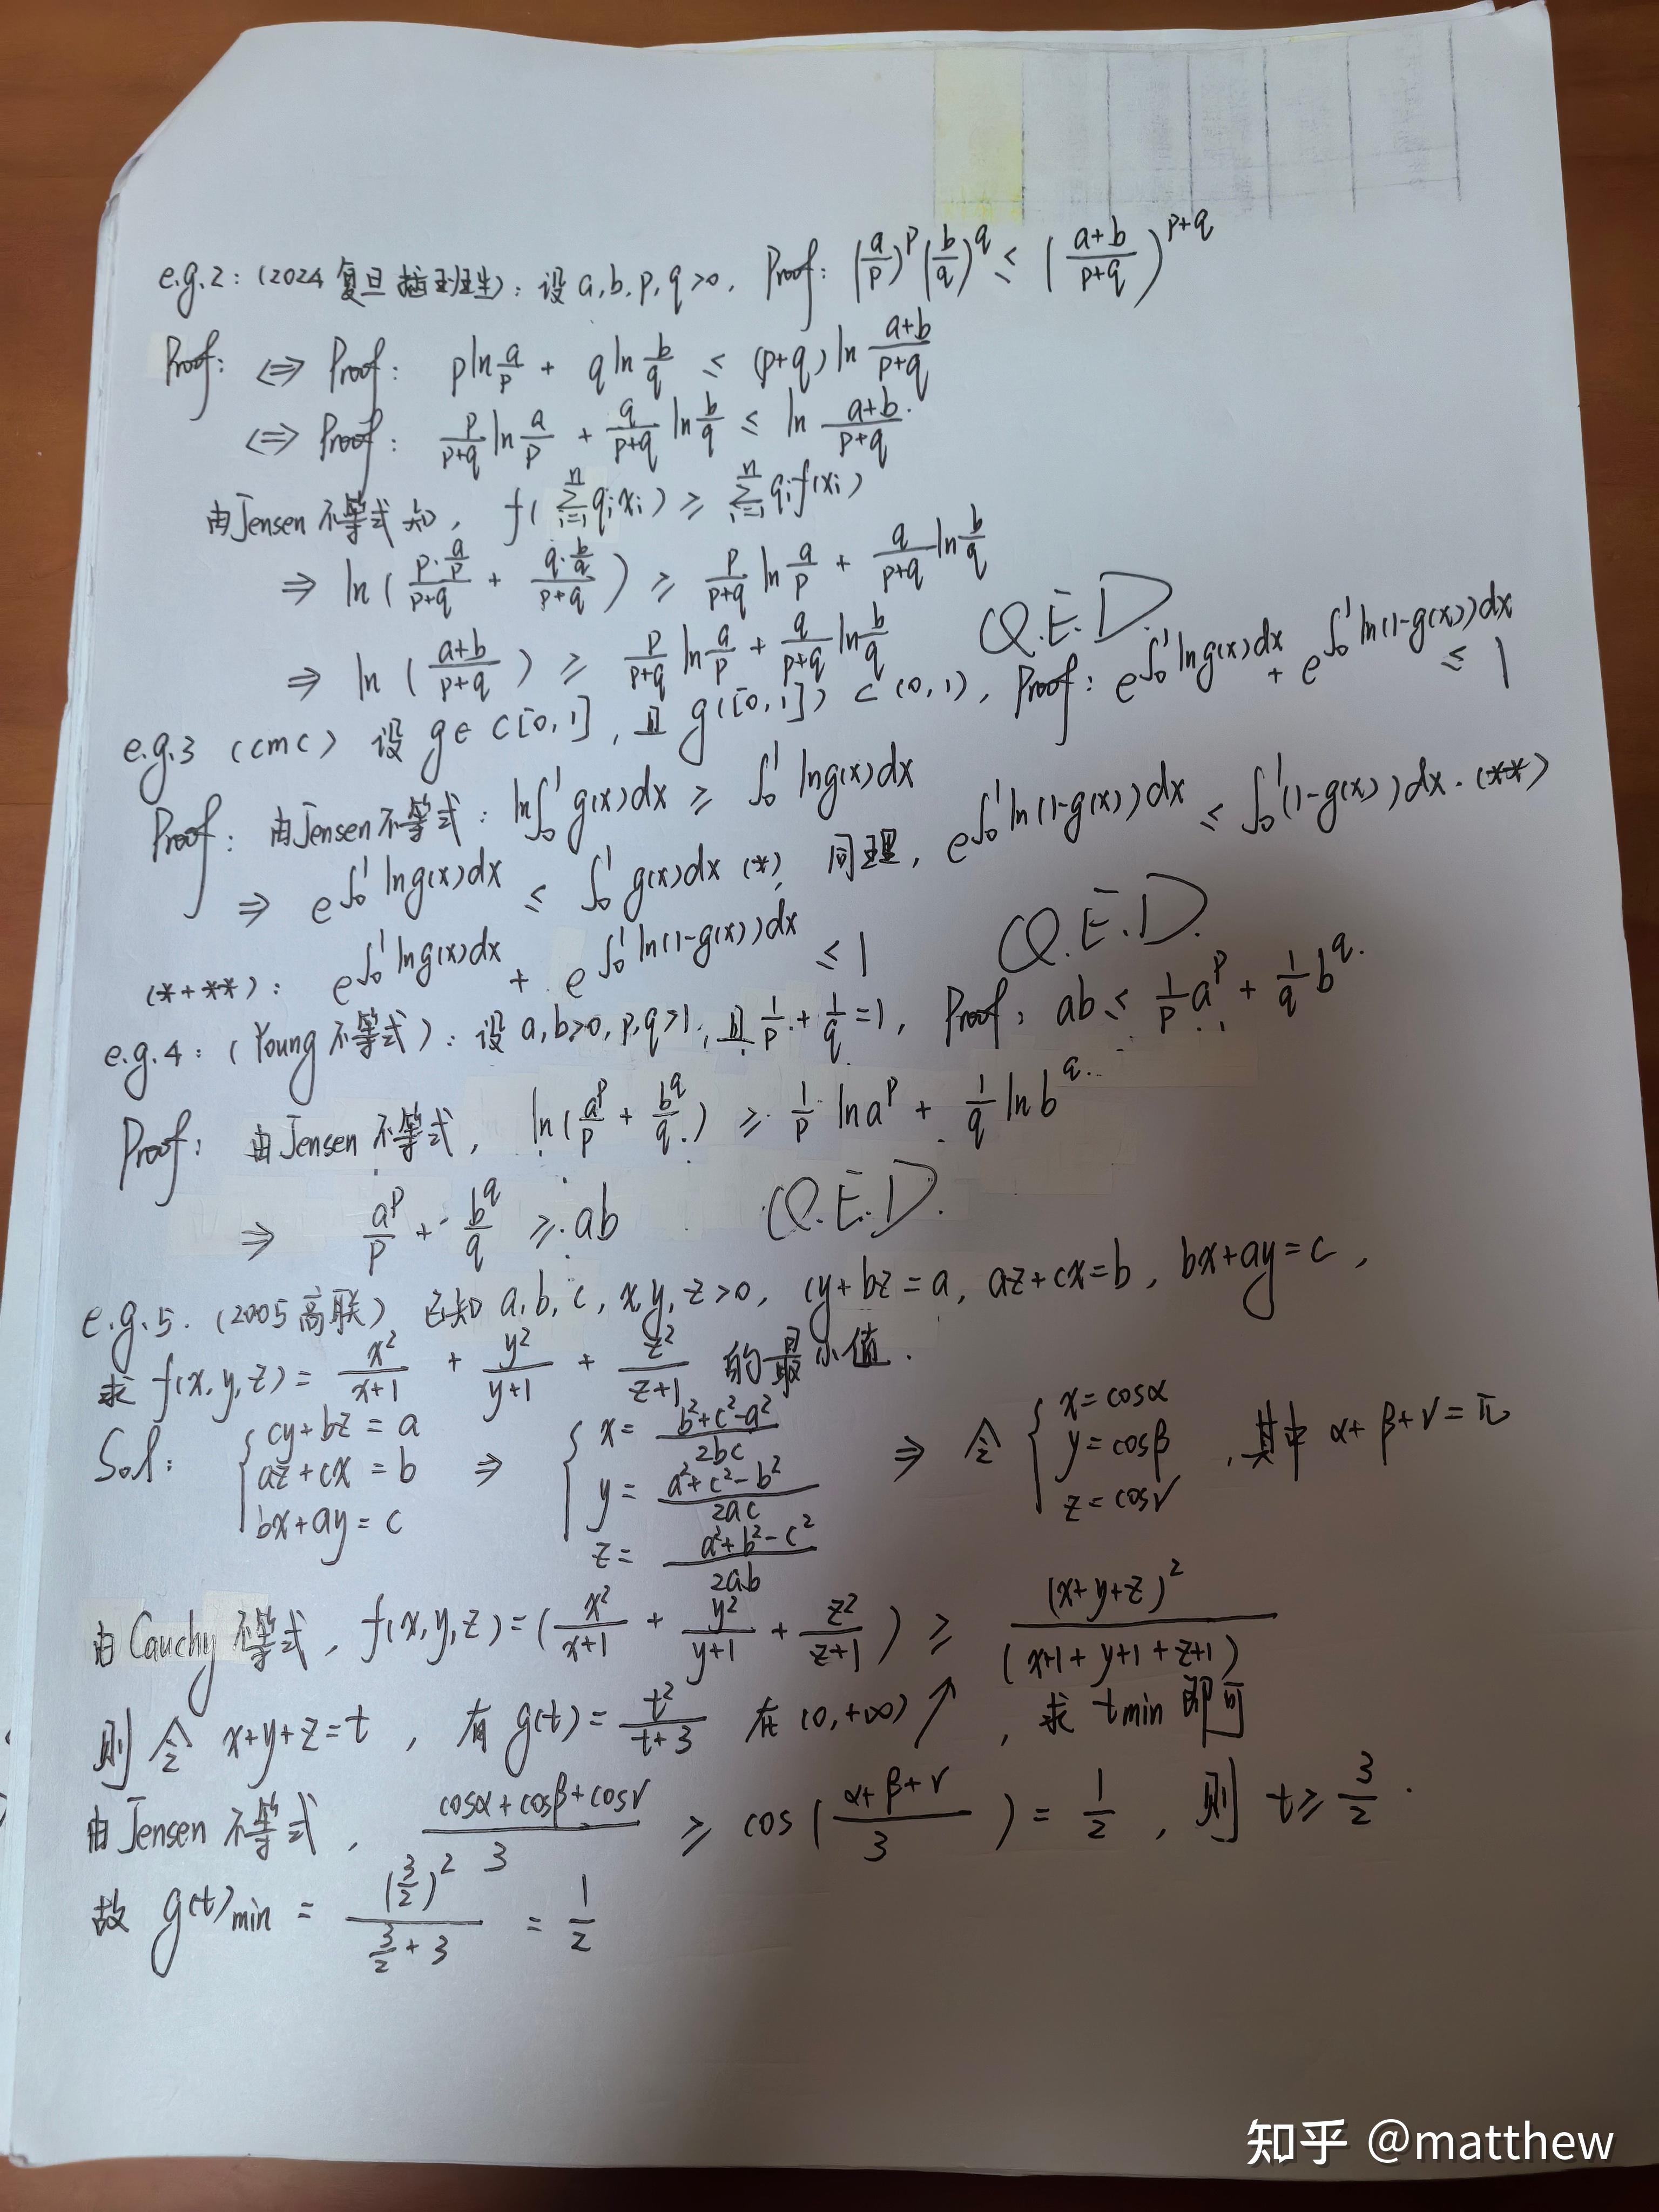 e.g.2：(2024复旦插班生)：设 a,b,p,q>0，Proof：(a/p)^p (b/q)^q ≤ ((a+b)/(p+q))^(p+q)
Proof：⇔ Proof：p ln a/p + q ln b/q ≤ (p+q) ln (a+b)/(p+q)
⇔ Proof：p/(p+q) ln a/p + q/(p+q) ln b/q ≤ ln (a+b)/(p+q)
由Jensen不等式知，f(∑_{i=1}^n q_i x_i) ≥ ∑_{i=1}^n q_i f(x_i)
⇒ ln( (p·a/p)/(p+q) + (q·b/q)/(p+q) ) ≥ p/(p+q) ln a/p + q/(p+q) ln b/q
⇒ ln( (a+b)/(p+q) ) ≥ p/(p+q) ln a/p + q/(p+q) ln b/q Q.E.D.
e.g.3 (cmc) 设 g∈C[0,1]，且 g([0,1])⊂(0,1)，Proof：e^{∫_0^1 ln g(x)dx} + e^{∫_0^1 ln(1-g(x))dx} ≤ 1
Proof：由Jensen不等式：ln∫_0^1 g(x)dx ≥ ∫_0^1 ln g(x)dx
⇒ e^{∫_0^1 ln g(x)dx} ≤ ∫_0^1 g(x)dx (*)，同理，e^{∫_0^1 ln(1-g(x))dx} ≤ ∫_0^1 (1-g(x))dx. (**)
(*+**)：e^{∫_0^1 ln g(x)dx} + e^{∫_0^1 ln(1-g(x))dx} ≤ 1 Q.E.D.
e.g.4：(Young不等式)：设 a,b>0, p,q>1, 且 1/p + 1/q = 1，Proof：ab ≤ 1/p a^p + 1/q b^q.
Proof：由Jensen不等式，ln(a^p/p + b^q/q) ≥ 1/p ln a^p + 1/q ln b^q.
⇒ a^p/p + b^q/q ≥ ab Q.E.D.
e.g.5.(2005高联) 已知 a,b,c,x,y,z>0，cy+bz=a，az+cx=b，bx+ay=c，
求 f(x,y,z) = x²/(x+1) + y²/(y+1) + z²/(z+1) 的最小值.
Sol：{ cy+bz=a, az+cx=b, bx+ay=c ⇒ { x=(b²+c²-a²)/2bc, y=(a²+c²-b²)/2ac, z=(a²+b²-c²)/2ab ⇒ 令 { x=cosα, y=cosβ, z=cosγ，其中 α+β+γ=π
由Cauchy不等式，f(x,y,z) = (x²/(x+1) + y²/(y+1) + z²/(z+1)) ≥ (x+y+z)²/(x+1+y+1+z+1)
则令 x+y+z=t，有 g(t)=t²/(t+3) 在 (0,+∞)↗，求 t_min 即可
由Jensen不等式，(cosα+cosβ+cosγ)/3 ≥ cos((α+β+γ)/3) = 1/2，则 t≥3/2.
故 g(t)_min = (3/2)²/(3/2+3) = 1/2
知乎 @matthew